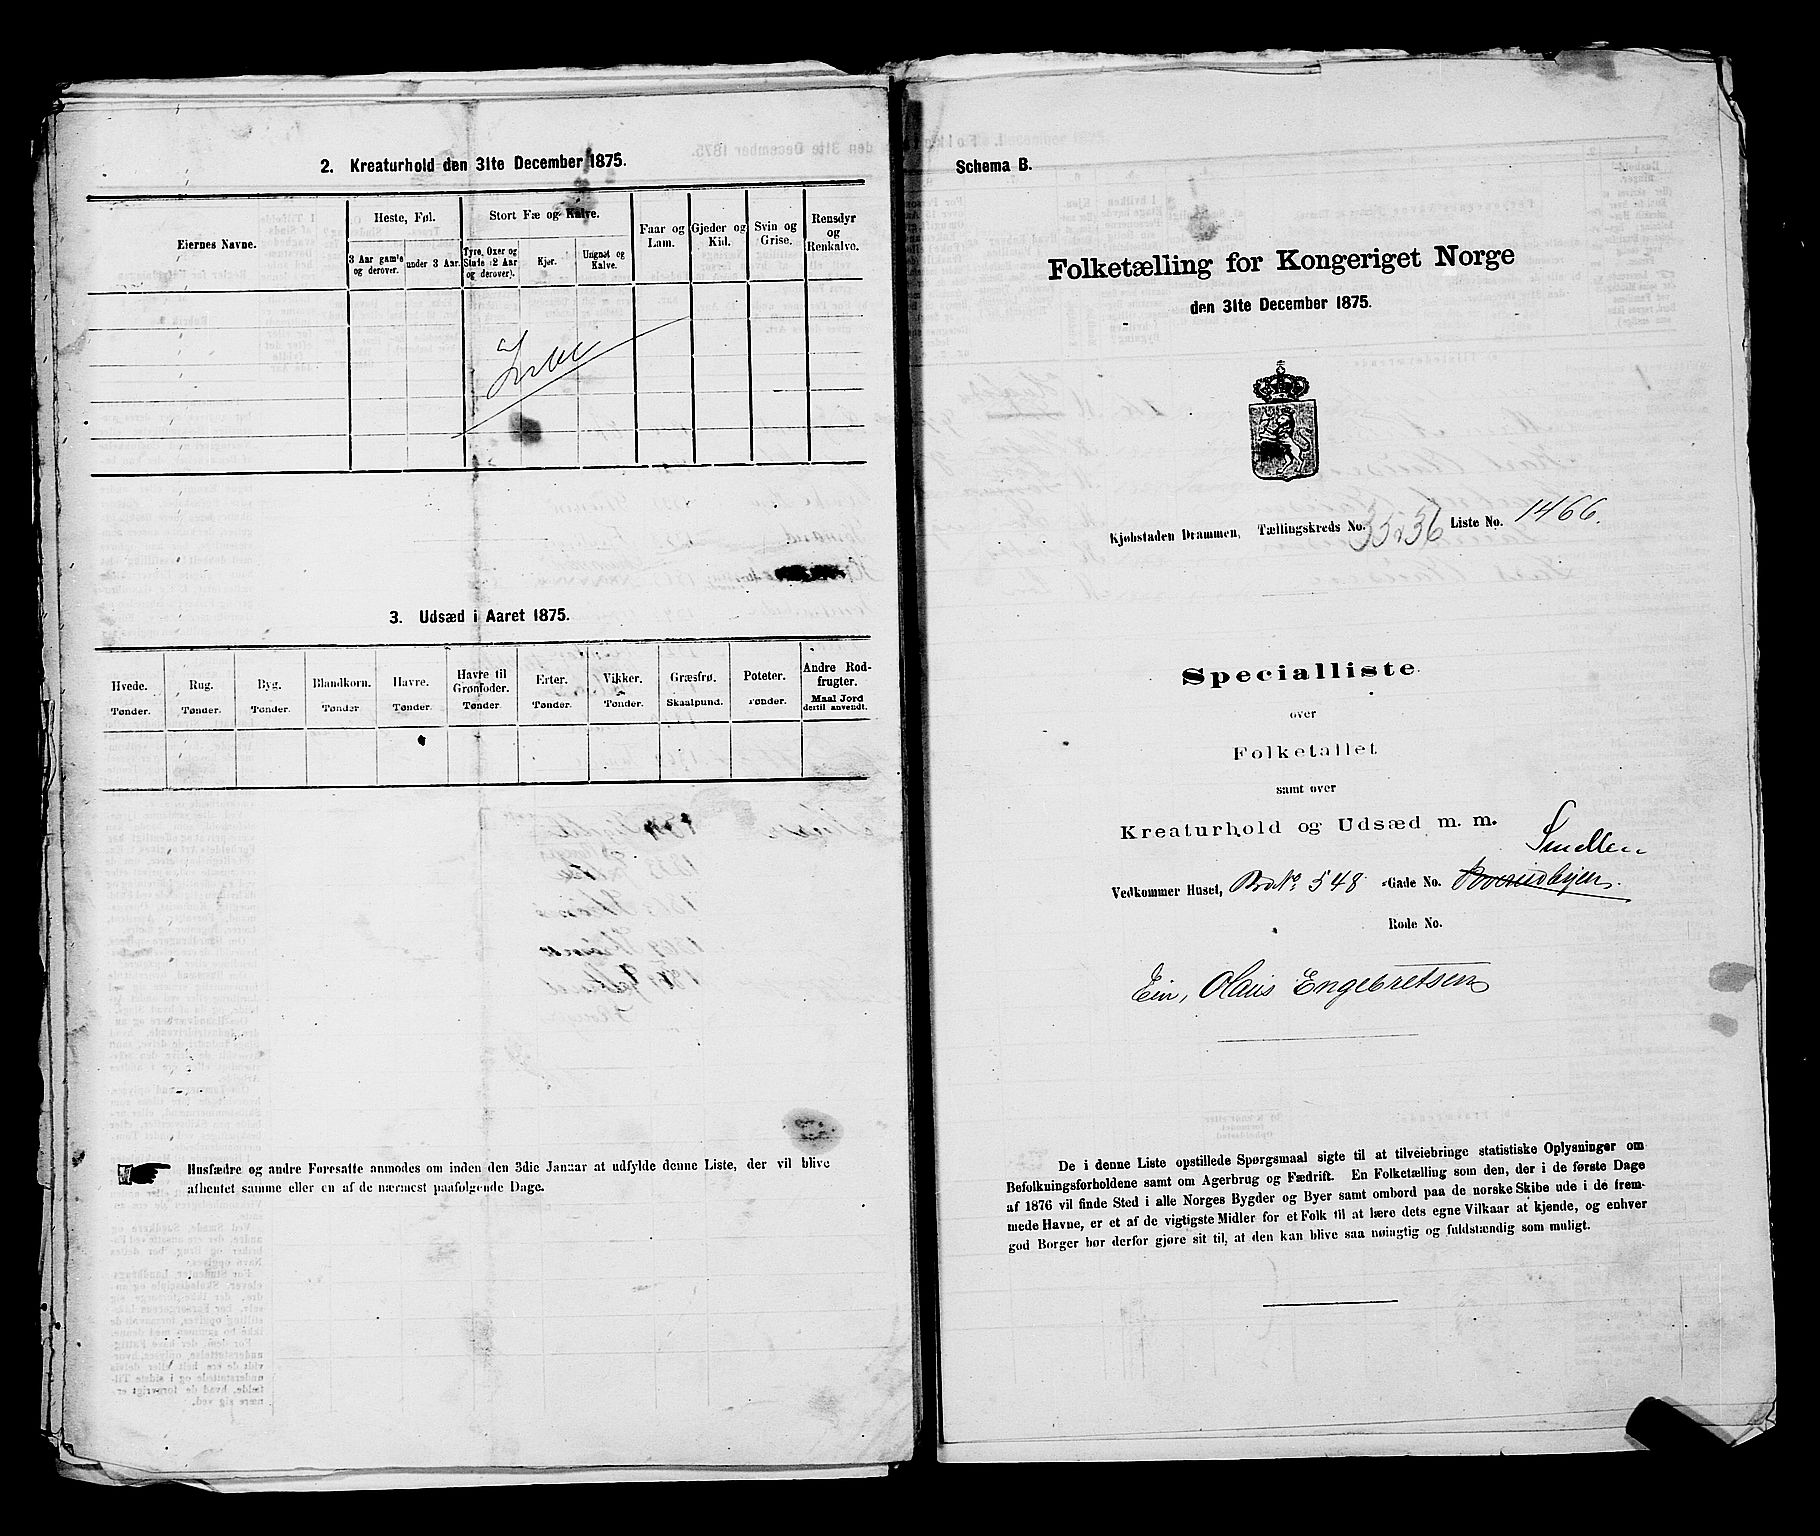 2. Kreaturhold den 31te December 1875.
Eiernes Navne.
Heste, Føl.
Stort Fæ og Kalve.
Faar og Lam.
Gjeder og Kid.
Svin og Grise.
Rensdyr og Renkalve.
3 Aar gamle og derover.
under 3 Aar.
Tyre, Oxer og Stude (2 Aar og derover).
Kjør.
Ungnøt og Kalve.
3. Udsæd i Aaret 1875.
Hvede. Rug. Byg. Blandkorn. Havre. Havre til Grønfoder. Erter. Vikker. Græsfrø. Poteter. Andre Rodfrugter.
Tønder. Tønder. Tønder. Tønder Tønder. Tønder Tønder. Tønder. Skaalpund. Tønder. Maal Jord dertil anvendt.
Husfædre og andre Foresatte anmodes om inden den 3die Januar at udfylde denne Liste, der vil blive
afhentet samme eller en af de nærmest paafølgende Dage.
Schema B.
Folketælling for Kongeriget Norge
den 31te December 1875.
Kjøbstaden Drammen, Tællingskreds No. 35 & 36 Liste No. 1466.
Specialliste
over
Folketallet
samt over
Kreaturhold og Udsæd m. m.
Smellen
Vedkommer Huset, Br. No. 548 Gade No.
Rode No.
Ein, Olaus Engebretsen
De i denne Liste opstillede Spørgsmaal sigte til at tilveiebringe statistiske Oplysninger om
Befolkningsforholdene samt om Agerbrug og Fædrift. En Folketælling som den, der i de første Dage
af 1876 vil finde Sted i alle Norges Bygder og Byer samt ombord paa de norske Skibe ude i de frem-
mede Havne, er et af de vigtigste Midler for et Folk til at lære dets egne Vilkaar at kjende, og enhver
god Borger bør derfor gjøre sit til, at den kan blive saa nøiagtig og fuldstændig som muligt.